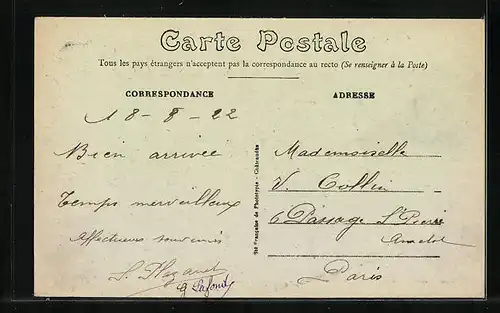 Carte Postale
Tous les pays étrangers n'acceptent pas la correspondance au recto (Se renseigner à la Poste)
CORRESPONDANCE
18-8-22
Bien arrivée
Temps merveilleux
Affectueux souvenirs
ADRESSE
Mademoiselle
V. Collin
6 Passage St Pierre
Amelot
Paris
Sté Française de Phototypie - Châteaudun